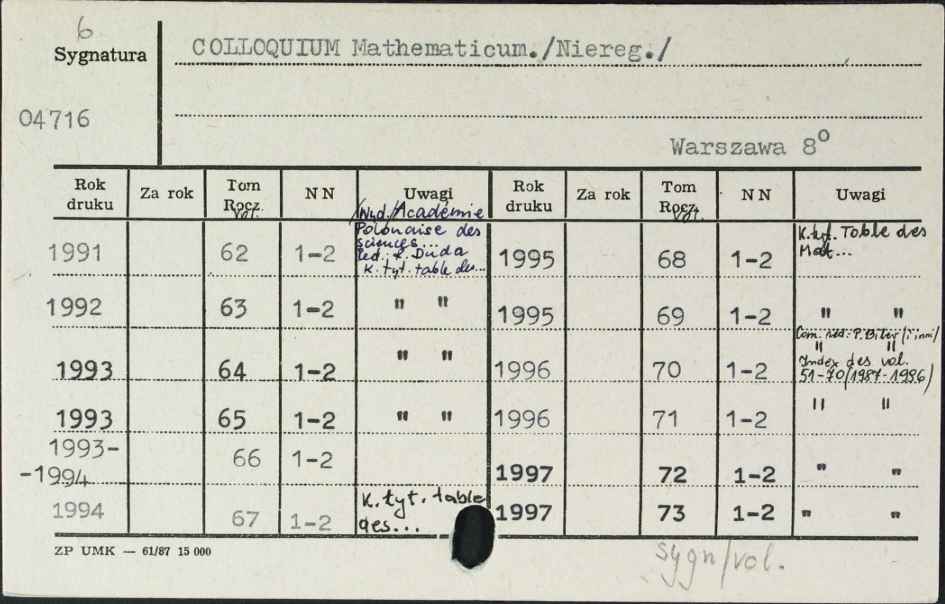 6
Sygnatura
COLLOQUIUM Mathematicum./Niereg./
04716
Warszawa 8⁰
Rok druku Za rok Tom Rocz. vol. N N Uwagi Rok druku Za rok Tom Rocz. vol. N N Uwagi
1991 62 1-2 /Wyd./Académie
Polonaise des
sciences...
Red.: R. Duda
K. tyt. table des...
1995 68 1-2 K. tyt. Table des
Mat...
1992 63 1-2 " "
1995 69 1-2 " "
1993 64 1-2 " "
1996 70 1-2 Com. réd.: P. Biler /i inni/
" "
Index des vol.
51-70/1987-1996/
1993 65 1-2 " "
1996 71 1-2 " "
1993-
-1994 66 1-2
1997 72 1-2 " "
1994 67 1-2 K. tyt. table
des...
1997 73 1-2 " "
ZP UMK — 61/87 15 000
sygn/vol.